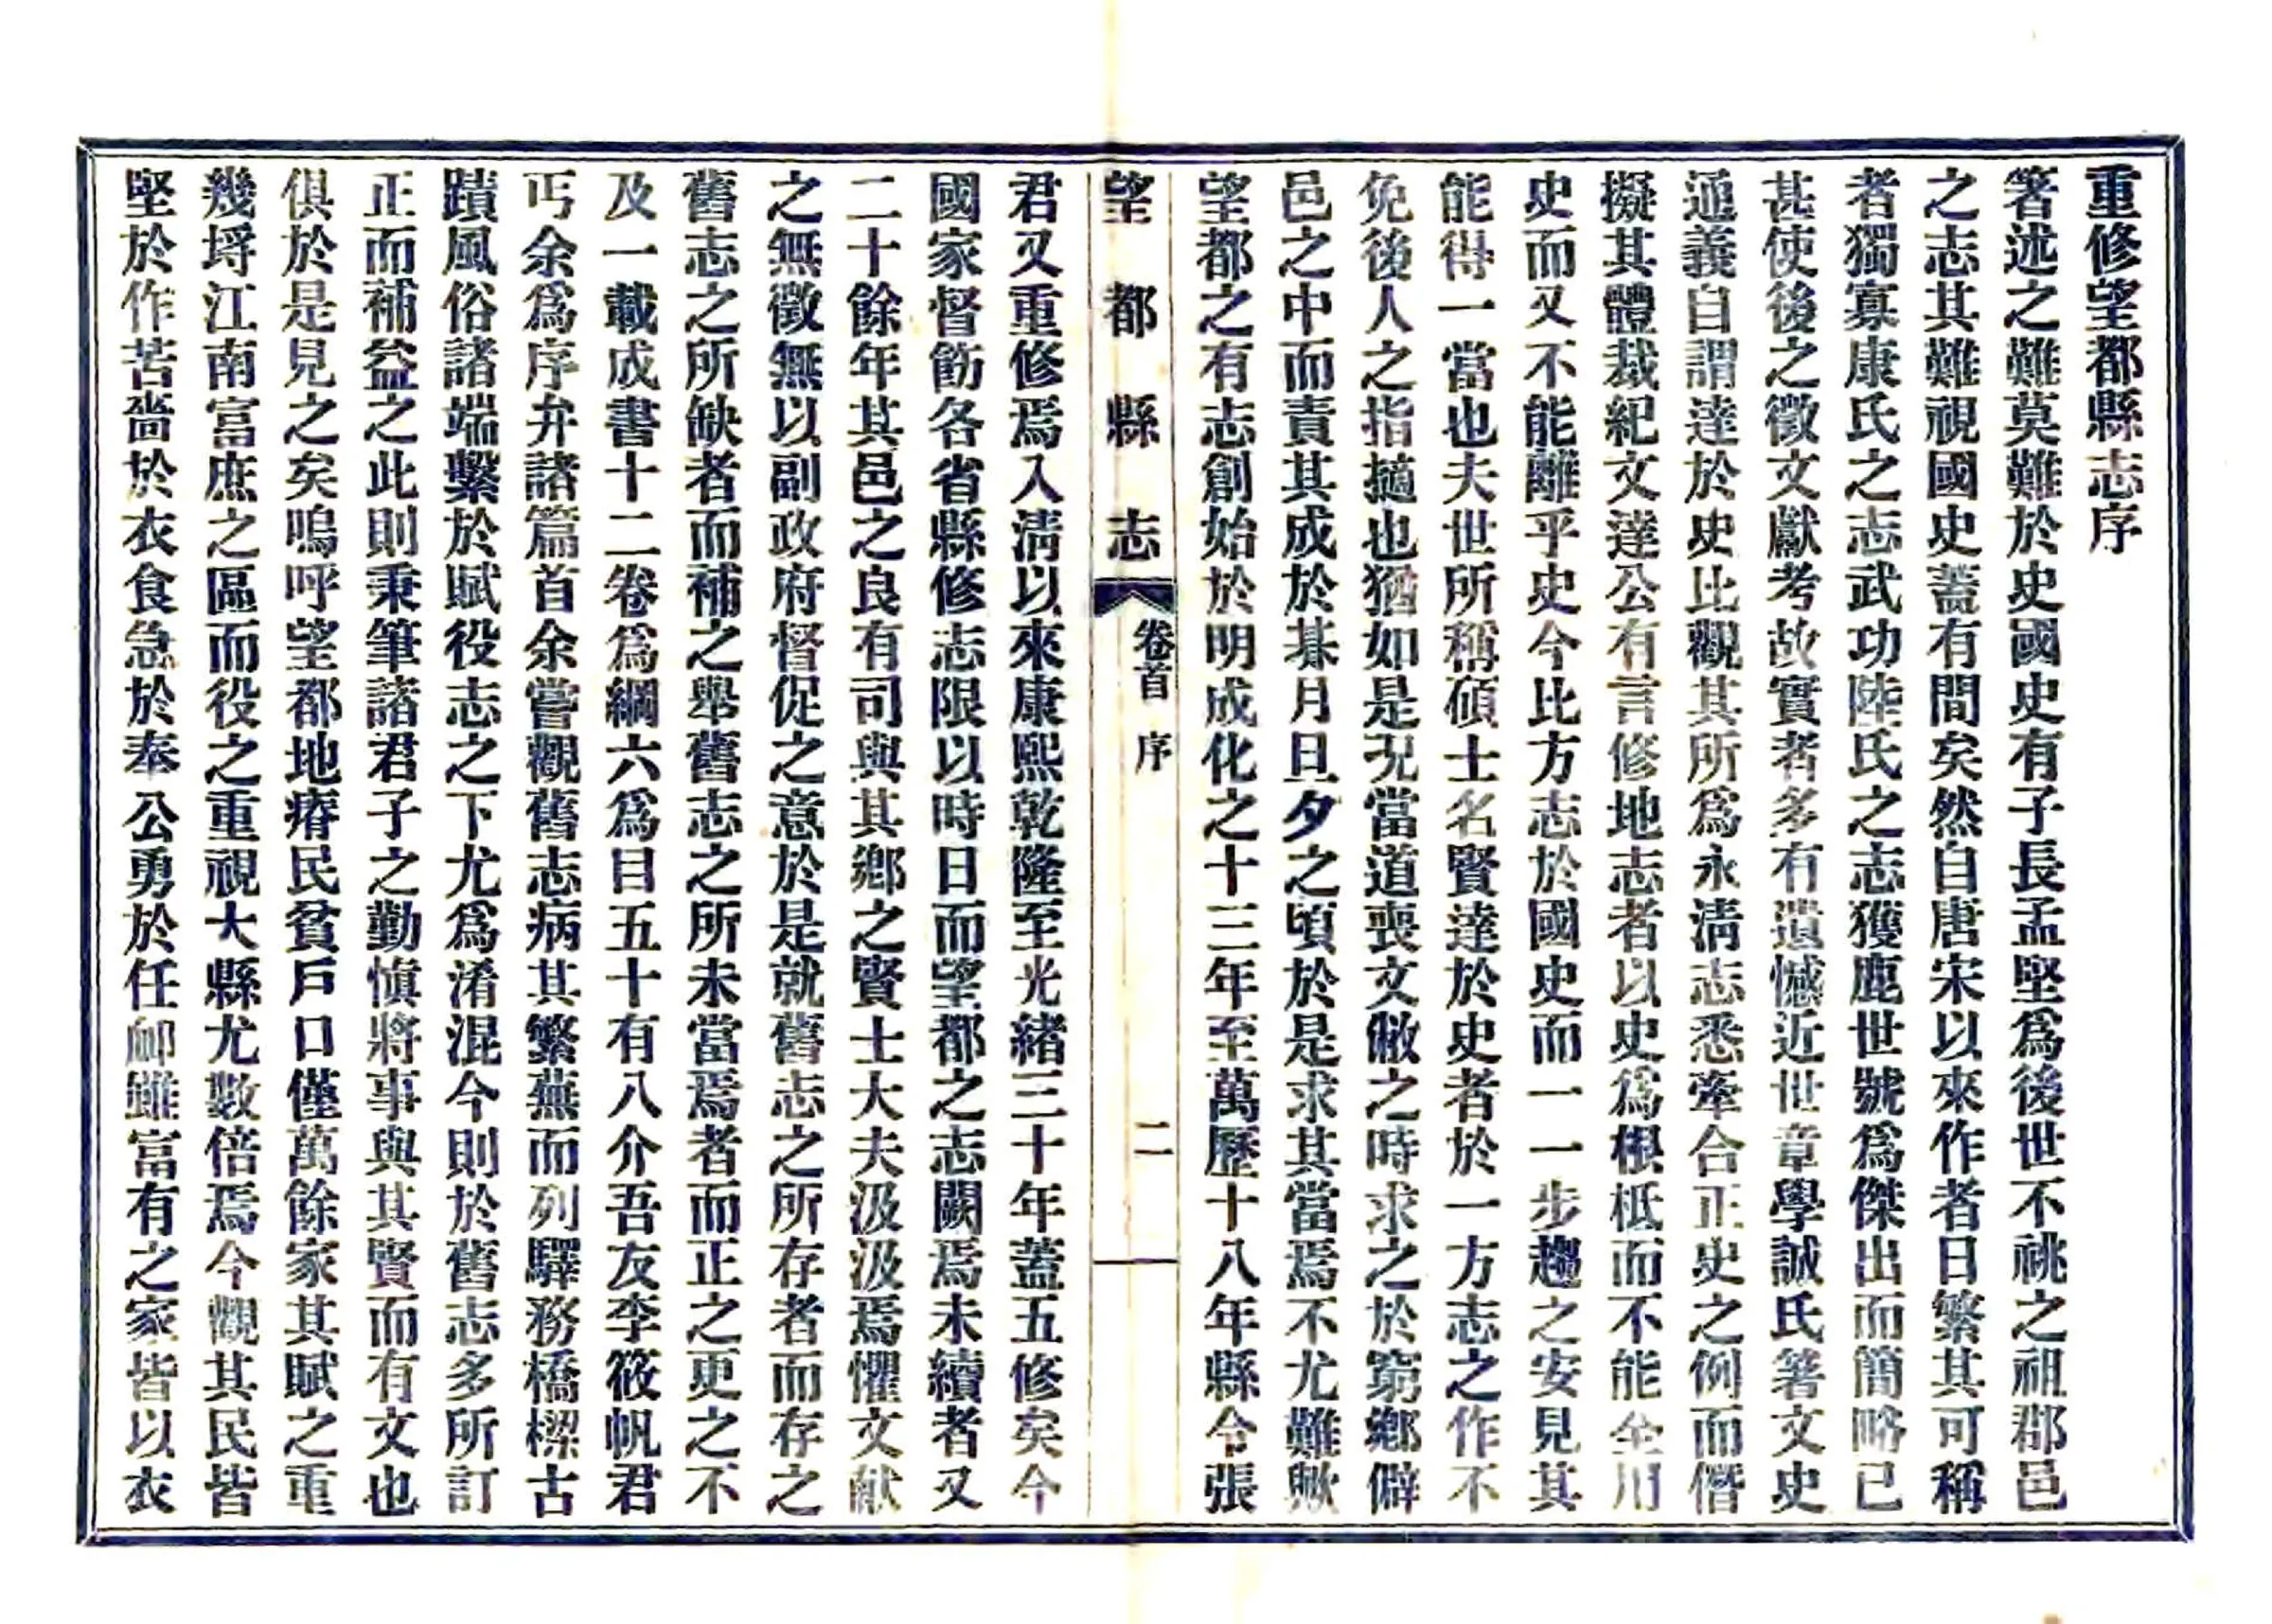 重修望都縣志序
箸述之難莫難於史國史有子長孟堅爲後世不祧之祖郡邑
之志其難視國史蓋有間矣然自唐宋以來作者日繁其可稱
者獨寡康氏之志武功陸氏之志獲鹿世號爲傑出而簡略已
甚使後之徵文獻考故實者多有遺憾近世章學誠氏箸文史
通義自謂達於史比觀其所爲永淸志悉牽合正史之例而僭
擬其體裁紀文達公有言修地志者以史爲根柢而不能全用
史而又不能離乎史今比方志於國史而一一步趨之安見其
能得一當也夫世所稱碩士名賢達於史者於一方志之作不
免後人之指擿也猶如是况當道喪文敝之時求之於窮鄉僻
邑之中而責其成於朞月旦夕之頃於是求其當焉不尤難歟
望都之有志創始於明成化之十三年至萬歷十八年縣令張
望都縣志 卷首 序 二
君又重修焉入淸以來康熙乾隆至光緖三十年蓋五修矣今
國家督飭各省縣修志限以時日而望都之志闕焉未續者又
二十餘年其邑之良有司與其鄉之賢士大夫汲汲焉懼文献
之無徵無以副政府督促之意於是就舊志之所存者而存之
舊志之所缺者而補之舉舊志之所未當焉者而正之更之不
及一載成書十二卷爲綱六爲目五十有八介吾友李筱帆君
丐余爲序弁諸篇首余嘗觀舊志病其繁蕪而列驛務橋樑古
蹟風俗諸端繫於賦役志之下尤爲淆混今則於舊志多所訂
正而補益之此則秉筆諸君子之勤愼將事與其賢而有文也
俱於是見之矣嗚呼望都地瘠民貧戶口僅萬餘家其賦之重
幾埒江南富庶之區而役之重視大縣尤數倍焉今觀其民皆
堅於作苦嗇於衣食急於奉公勇於任卹雖富有之家皆以衣